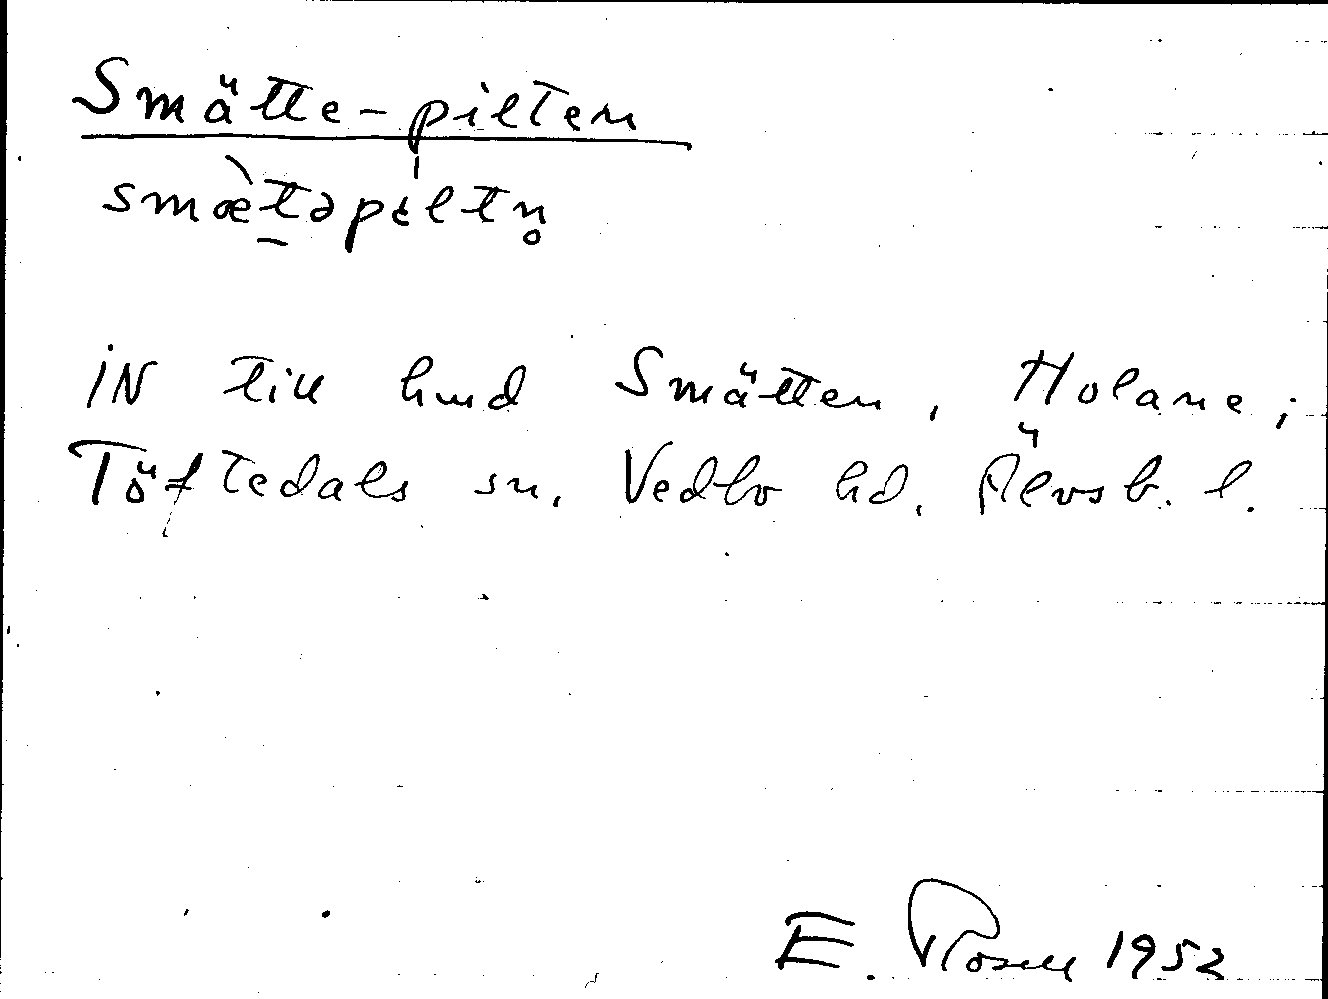 Smätte-pilten
smæ̀t̠əpiltn̥
IN till hmd Smätten, Holane;
Töftedals sn. Vedbo hd. Älvsb. l.
E. Rosell 1952